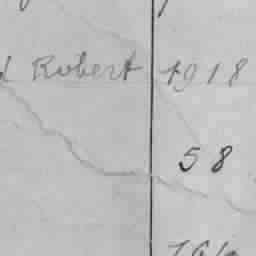 Robert 1918
58